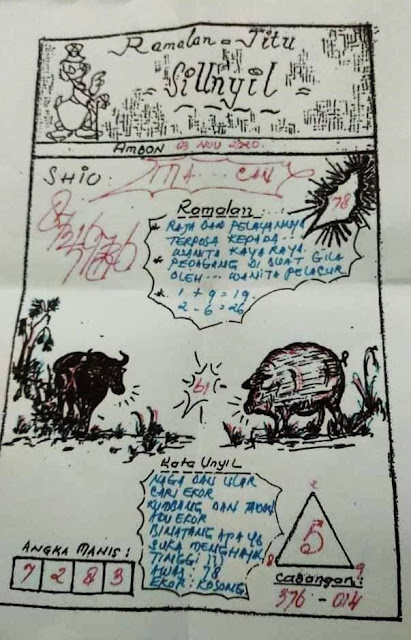 Ramalan = Jitu
= SiUnyil =
AMBON 03 NOV 2020.
SHIO
CARI
78
Ramalan
* RAJA DAN PELAYANNYA
TERPOSA KEPADA...
WANITA KAYA RAYA.
* PEDAGANG DI BUAT GILA
OLEH... WANITA PELACUR
* 1 + 9 = 19
2 - 6 = 26
19
Kata Unyil
NAGA DAN ULAR
CARI EKOR
KUMBANG DAN
ADU EKOR
BINATANG APA YG
SUKA
TINGGI
AWAS 78
EKOR : KOSONG
ANGKA MANIS :
7 2 8 3
2
5
8 9
Cabangan :
376 - 014